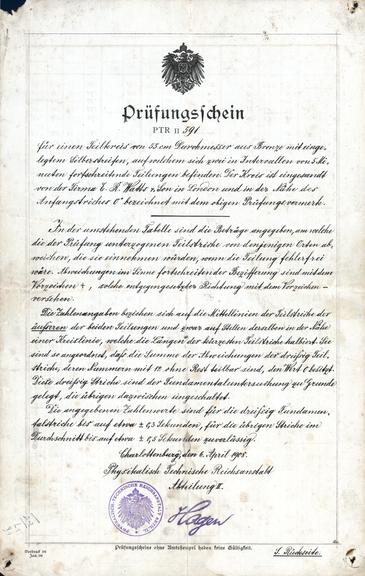 Prüfungsschein
PTR II 591
für einen Teilkreis von 55 cm Durchmesser aus Bronze mit einge-
legtem Silberstreifen, auf welchem sich zwei in Intervallen von 5 Mi-
nuten fortschreitende Teilungen befinden. Der Kreis ist eingesandt
von der Firma E. R. Watts & Son in London und in der Nähe des
Anfangsstriches 0° bezeichnet mit dem obigen Prüfungsvermerk.
In der umstehenden Tabelle sind die Beträge angegeben, um welche
die der Prüfung unterzogenen Teilstriche von denjenigen Orten ab-
weichen, die sie einnehmen würden, wenn die Teilung fehlerfrei
wäre. Abweichungen im Sinne fortschreitender Bezifferung sind mit dem
Vorzeichen +, solche entgegengesetzter Richtung mit dem Vorzeichen –
versehen.
Die Zahlenangaben beziehen sich auf die Mittellinien der Teilstriche der
äusseren der beiden Teilungen und zwar auf Stellen derselben in der Nähe
einer Kreislinie, welche die Längen der kürzesten Teilstriche halbiert. Sie
sind so angeordnet, daß die Summe der Abweichungen der dreißig Teil-
striche, deren Nummern mit 12 ohne Rest teilbar sind, den Wert 0 besitzt.
Diese dreißig Striche sind der Fundamentaluntersuchung zu Grunde
gelegt, die übrigen dazwischen eingeschaltet.
Die angegebenen Zahlenwerte sind für die dreißig Fundamen-
talstriche bis auf etwa ± 0,3 Sekunden, für die übrigen Striche im
Durchschnitt bis auf etwa ± 0,5 Sekunden zuverlässig.
Charlottenburg, den 6. April 1905.
Physikalisch Technische Reichsanstalt
Abteilung II.
Hagen
PHYSIKALISCH-TECHNISCHE REICHSANSTALT
Prüfungsscheine ohne Amtsstempel haben keine Gültigkeit.
S. Rückseite.